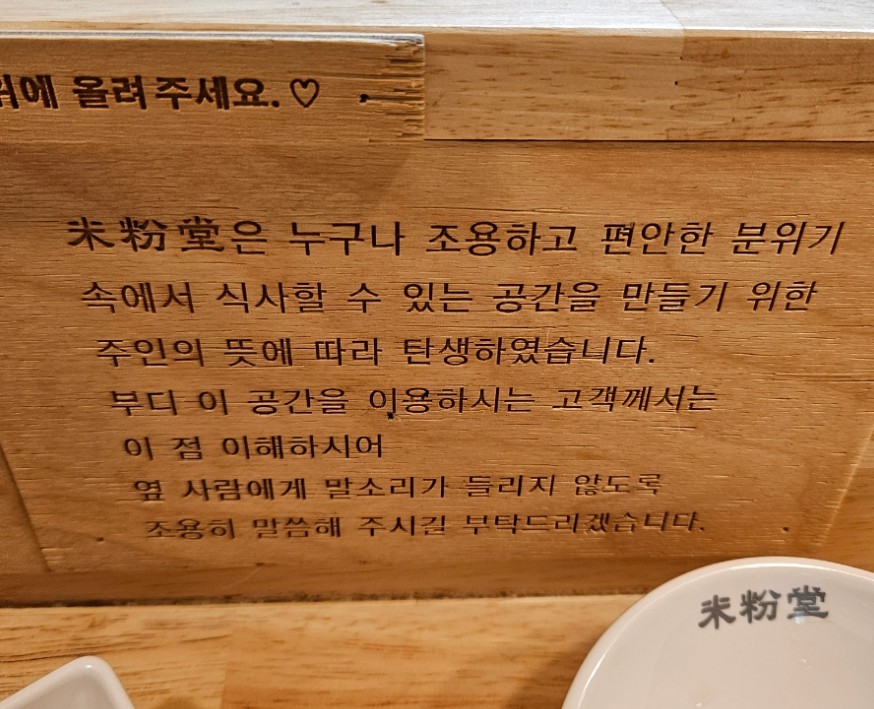 위에 올려주세요.♡
米粉堂은 누구나 조용하고 편안한 분위기
속에서 식사할 수 있는 공간을 만들기 위한
주인의 뜻에 따라 탄생하였습니다.
부디 이 공간을 이용하시는 고객께서는
이 점 이해하시어
옆 사람에게 말소리가 들리지 않도록
조용히 말씀해 주시길 부탁드리겠습니다.
米粉堂